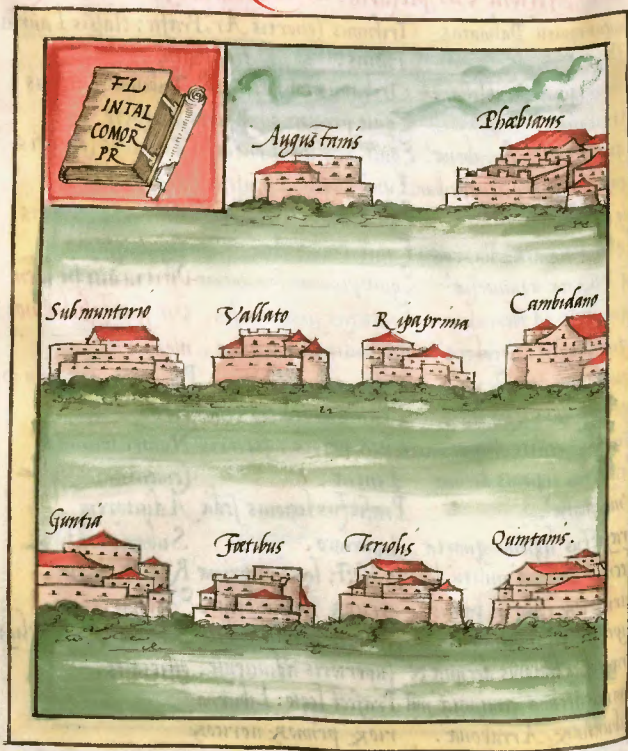 FL
INTAL
COMOR̄
PR̄
Augustanis
Phæbianis
Submuntorio
Vallato
Ripaprima
Cambidano
Guntia
Fœtibus
Teriolis
Quintanis.